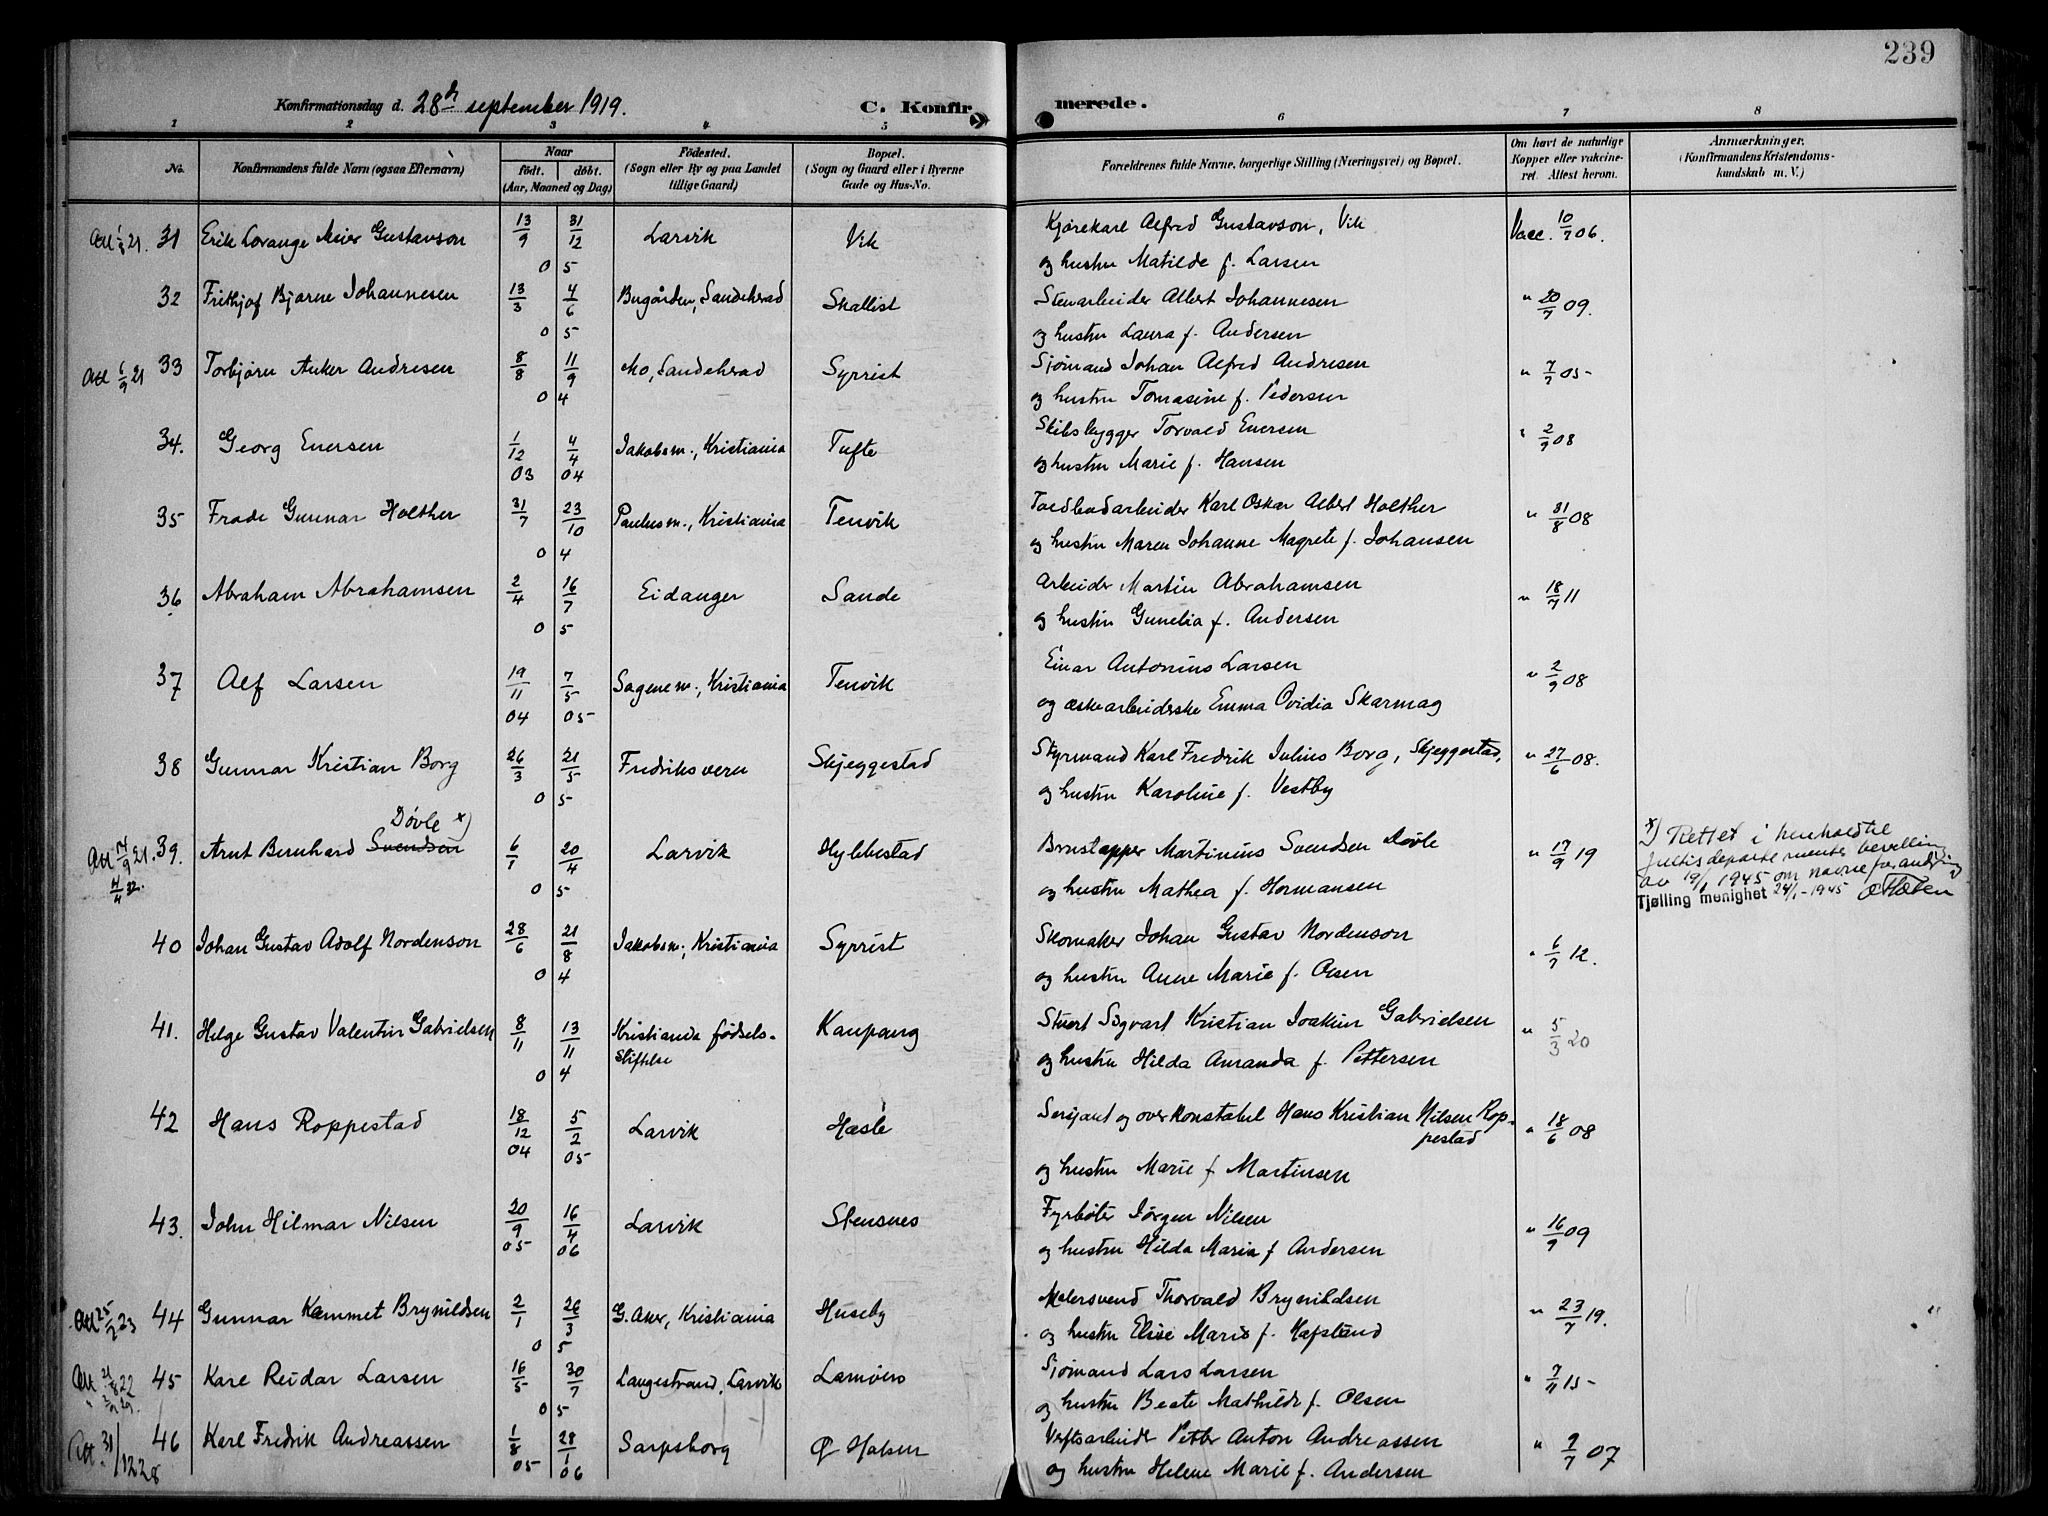 239
Konfirmationsdag d. 28de september 1919. C. Konfirmerede.
1 2 3 4 5 6 7 8
No. Konfirmandens fulde Navn (ogsaa Efternavn) Naar født. døbt. (Aar, Maaned og Dag) Fødested. (Sogn eller By og paa Landet tillige Gaard) Bopæl. (Sogn og Gaard eller i Byerne Gade og Hus-No. Forældrenes fulde Navne, borgerlige Stilling (Næringsvei) og Bopæl. Om havt de naturlige Kopper eller vakcineret. Attest herom. Anmærkninger. (Konfirmandens Kristendomskundskab m. V.)
31 Erik Lorange Meier Gustavson 13/9 31/12 Larvik Vik Kjørekarl Alfred Gustavson, Vik Vacc. 10/7 06.
05 og hustru Matilde f. Larsen
32 Frithjof Bjarne Johannesen 13/3 4/6 Bugården, Sandeherad Skallist Stenarbeider Albert Johannesen " 20/7 09.
05 og hustru Laura f. Andersen
Att 6/9 21 33 Torbjørn Anker Andresen 8/8 11/9 Mo, Sandeherad Syrrist Sjømand Johan Alfred Andresen " 7/7 05
04 og hustru Tomasine f. Pedersen
34. Georg Enersen 1/12 4/4 Jakobsm., Kristiania Tufte Skibsbygger Torvald Enersen " 2/9 08
03 04 og hustru Marie f. Hansen
35 Frode Gunnar Holther 31/7 23/10 Paulusm., Kristiania Tenvik Toldbodarbeider Karl Oskar Albert Holther " 31/8 08
04 og hustru Maren Johanne Magrete f. Johansen
36 Abraham Abrahamsen 2/4 16/7 Eidanger Sande Arbeider Martin Abrahamsen " 18/7 11
05 og hustru Gunelia f. Andersen
37 Alf Larsen 19/11 7/5 Sagenem., Kristiania Tenvik Einar Antonius Larsen " 2/9 08
04 05 og æskearbeiderske Emma Ovidia Skarmag
38 Gunnar Kristian Borg 26/3 21/5 Fredriksvern Skjeggestad Styrmand Karl Fredrik Julius Borg, Skjeggestad, " 27/6 08.
05 og hustru Karoline f. Vestby
Døvle x)
Att 14/9 21. 39. Arnt Bernhard Svendsen 6/1 20/4 Larvik Hybbestad Brustapper Martinius Svendsen Døvle " 17/9 19
4/4 32. 05 og hustru Mathea f. Hermansen
x) Rettet i henhold til
justisdepartementets bevilling
av 19/1 1945 om navneforandring
Tjølling menighet 24/1-1945
40 Johan Gustav Adolf Nordenson 28/6 21/8 Jakobsm., Kristiania Syrrist Skomaker Johan Gustav Nordenson " 6/7 12.
04 og hustru Anne Marie f. Olsen
41. Helge Gustav Valentin Gabrielsen 8/11 13/11 Kristiania fødsels- Kaupang Stuert Sigvart Kristian Joakim Gabrielsen " 5/3 20
stiftelse 04 og hustru Hilda Amanda f. Pettersen
42 Hans Roppestad 18/12 5/2 Larvik Hasle Sersjant og overkonstabel Hans Kristian Nilsen Rop- " 18/6 08
04 05 pestad
og hustru Marie f Martinsen
43. John Hilmar Nilsen 20/9 16/4 Larvik Stensnes Fyrbøter Jørgen Nilsen " 16/9 09
05 06 og hustru Hilda Maria f Andersen
Att 25/2 23 44 Gunnar Kemmet Brynildsen 2/1 26/3 G. Aker, Kristiania Huseby Malersvend Thorvald Brynildsen " 23/7 19.
05 og hustru Elise Marie f. Hafstand
45 Kåre Reidar Larsen 16/5 30/7 Langestrand, Larvik Lamøen Sjømand Lars Larsen " 7/11 15
05 og hustru Beate Mathilde f. Olsen
Att. 31/12 28 46 Karl Fredrik Andreassen 1/8 28/1 Sarpsborg Ø Halsen Verftsarbeider Petter Anton Andreassen " 9/7 07
05 06 og hustru Helene Marie f. Andersen